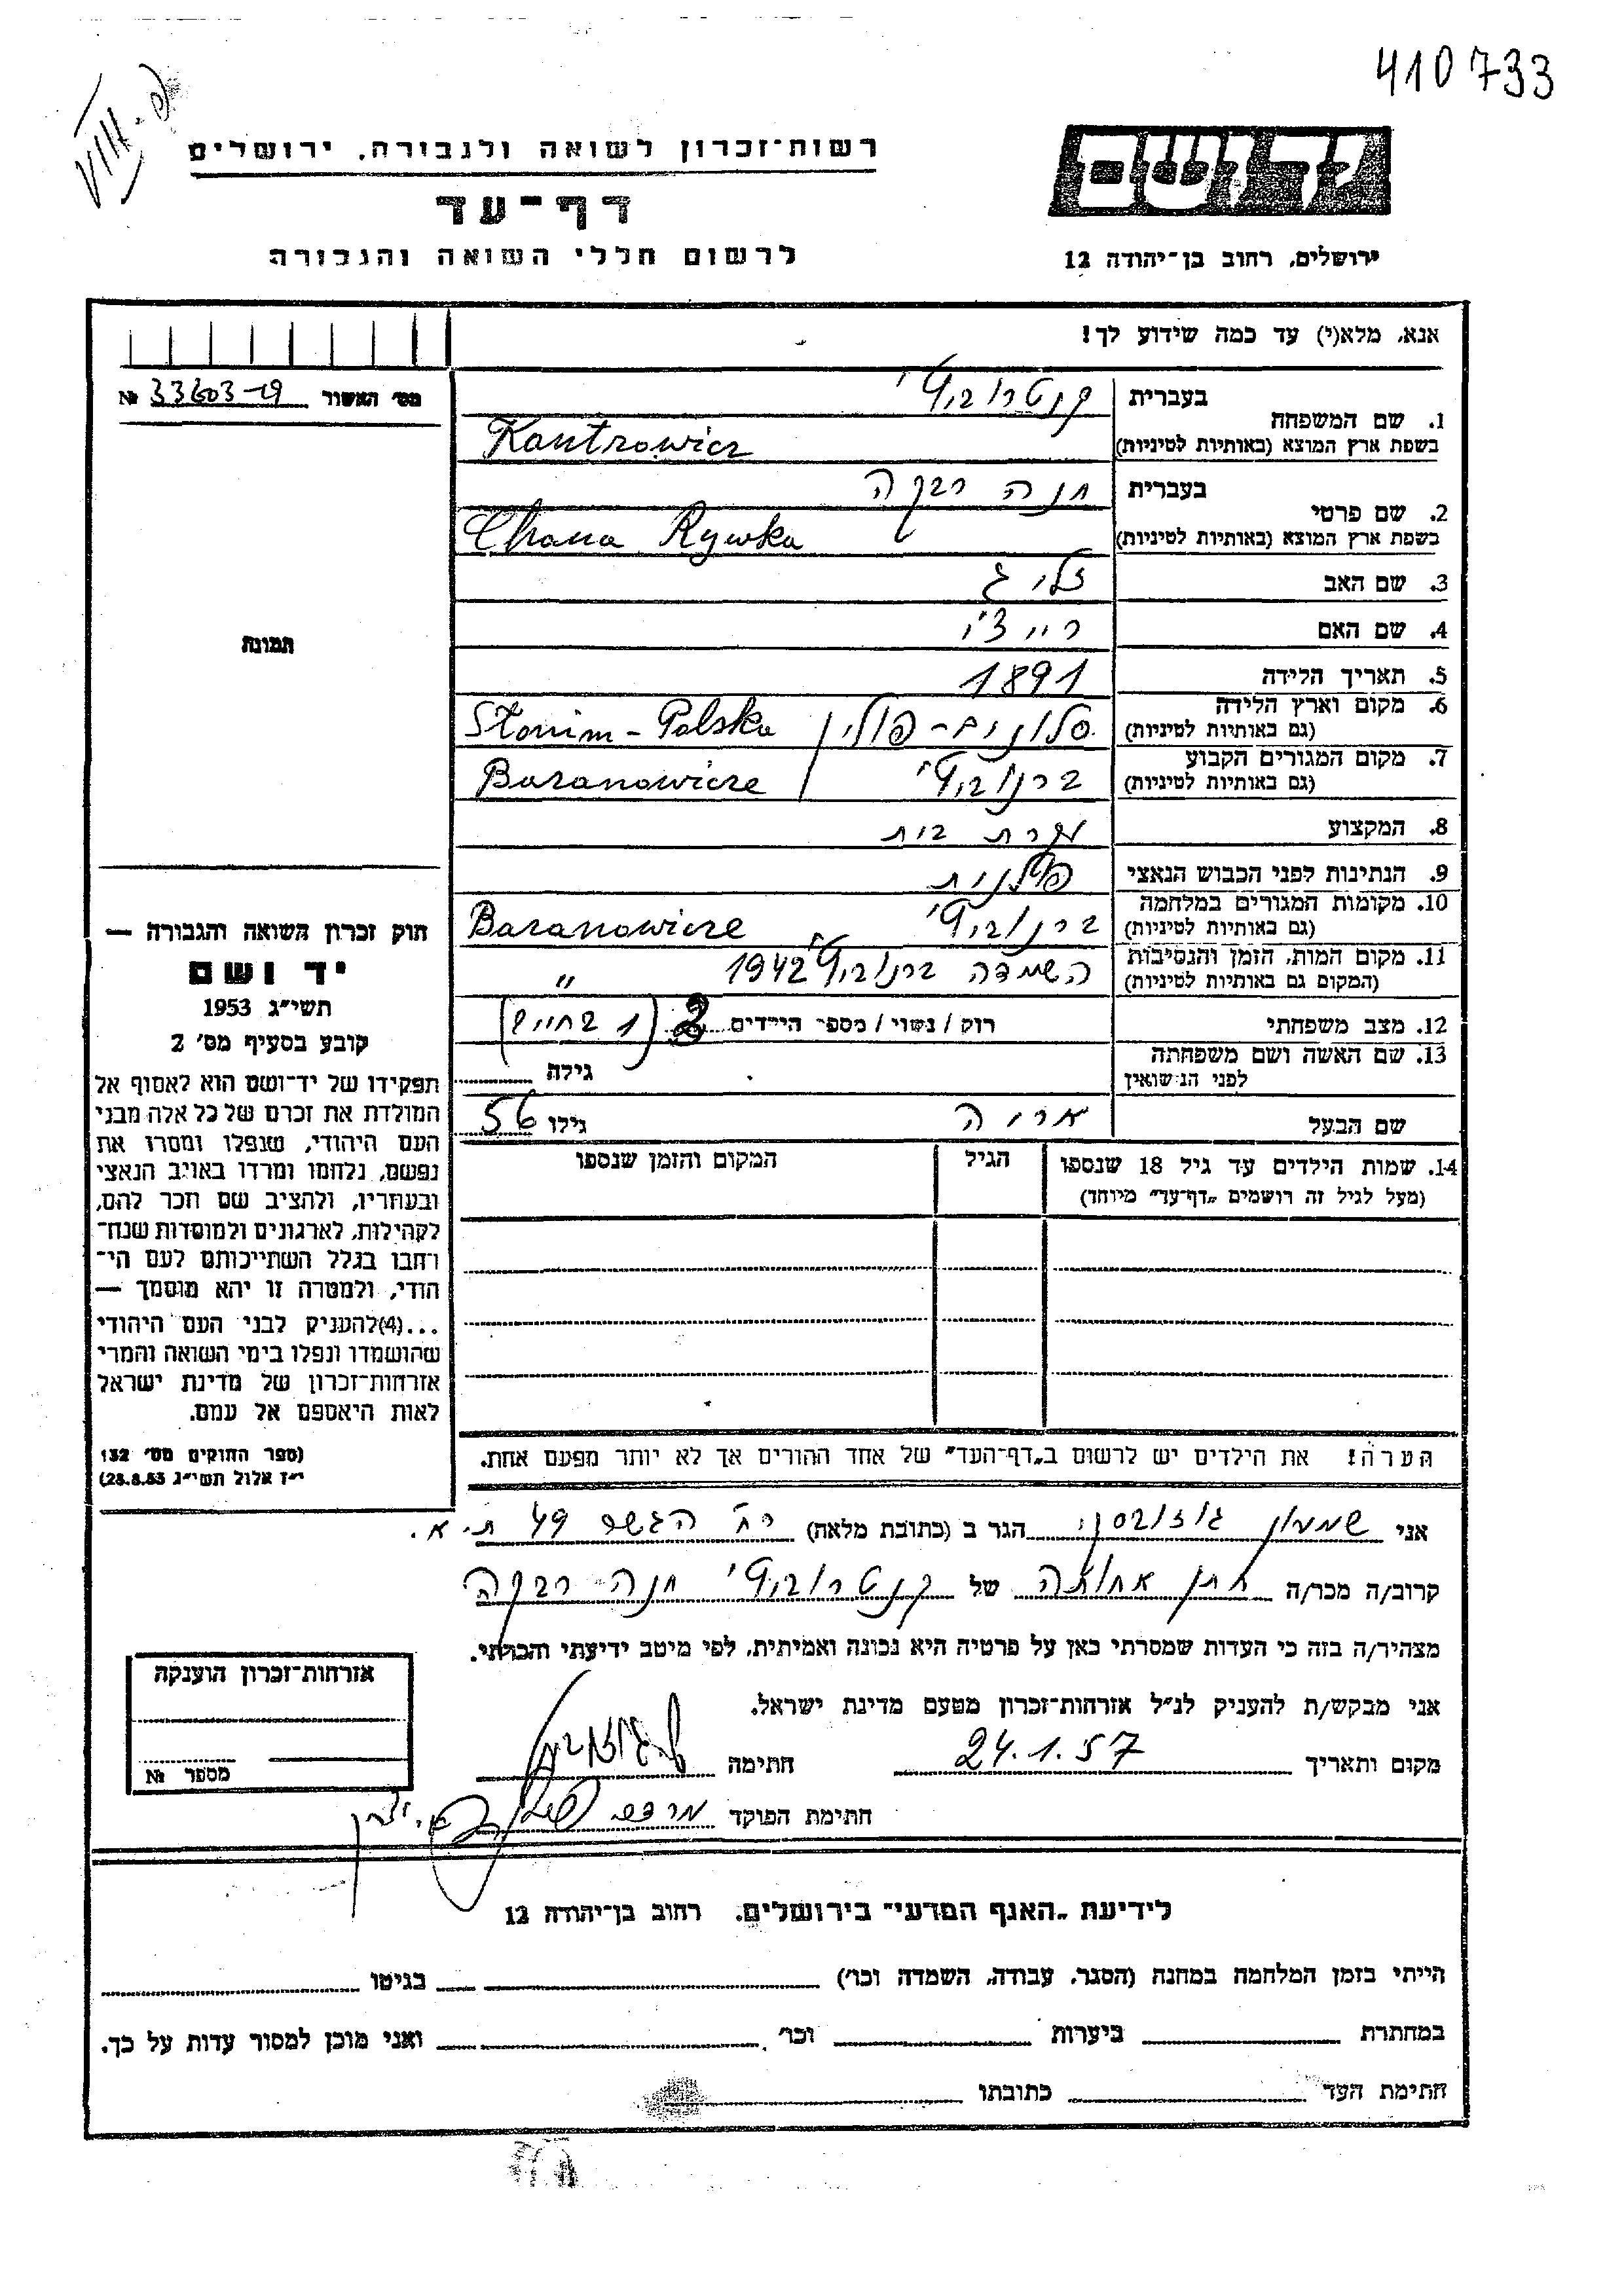 410733
VIII-
רשות־זכרון לשואה ולגבורה, ירושלים
דף־עד
לרשום חללי השואה והגבורה
יד ושם
ירושלים, רחוב בן־יהודה 12
אנא, מלא(י) עד כמה שידוע לך!
מס׳ האשור № 33603-19
1. שם המשפחה
בעברית קנטרוביץ'
בשפת ארץ המוצא (באותיות לטיניות) Kantrowicz
2. שם פרטי
בעברית חנה רבקה
בשפת ארץ המוצא (באותיות לטיניות) Chana Rywka
3. שם האב זליג
4. שם האם
5. תאריך הלידה 1891
6. מקום וארץ הלידה סלונים - פולין Słonim - Polska
(גם באותיות לטיניות)
7. מקום המגורים הקבוע ברנוביץ' Baranowicze
(גם באותיות לטיניות)
8. המקצוע עקרת בית
9. הנתינות לפני הכבוש הנאצי פולנית
10. מקומות המגורים במלחמה ברנוביץ' Baranowicze
(גם באותיות לטיניות)
11. מקום המות, הזמן והנסיבות השמדה ברנוביץ' 1942 "
(המקום גם באותיות לטיניות)
12. מצב משפחתי רוק / נשוי / מספר הילדים 2 (1 בחיים)
13. שם האשה ושם משפחתה
לפני הנשואין גילה
שם הבעל אריה גילו 56
14. שמות הילדים עד גיל 18 שנספו הגיל המקום והזמן שנספו
(מעל לגיל זה רושמים „דף־עד” מיוחד)
הערה! את הילדים יש לרשום ב„דף־העד” של אחד ההורים אך לא יותר מפעם אחת.
תמונה
חוק זכרון השואה והגבורה —
יד ושם
תשי״ג 1953
קובע בסעיף מס׳ 2
תפקידו של יד־ושם הוא לאסוף אל
המולדת את זכרם של כל אלה מבני
העם היהודי, שנפלו ומסרו את
נפשם, נלחמו ומרדו באויב הנאצי
ובעוזריו, ולהציב שם וזכר להם,
לקהילות, לארגונים ולמוסדות שנח־
רבו בגלל השתייכותם לעם הי־
הודי, ולמטרה זו יהא מוסמך —
...(4)להעניק לבני העם היהודי
שהושמדו ונפלו בימי השואה והמרי
אזרחות־זכרון של מדינת ישראל
לאות היאספם אל עמם.
(ספר החוקים מס׳ 132
י״ז אלול תשי״ג 28.8.53)
אני שמעון הגר ב (כתובת מלאה) רח' 49 ת.א.
קרוב/ה מכר/ה חתן אחותה של קנטרוביץ' חנה רבקה
מצהיר/ה בזה כי העדות שמסרתי כאן על פרטיה היא נכונה ואמיתית, לפי מיטב ידיעתי והכרתי.
אני מבקש/ת להעניק לנ״ל אזרחות־זכרון מטעם מדינת ישראל.
מקום ותאריך 24.1.57 חתימה
חתימת הפוקד
אזרחות־זכרון הוענקה
מספר №
לידיעת „האגף המדעי” בירושלים, רחוב בן־יהודה 12
הייתי בזמן המלחמה במחנה (הסגר, עבודה, השמדה וכו׳) בגיטו
במחתרת ביערות וכו׳ ואני מוכן למסור עדות על כך.
חתימת העד כתובתו